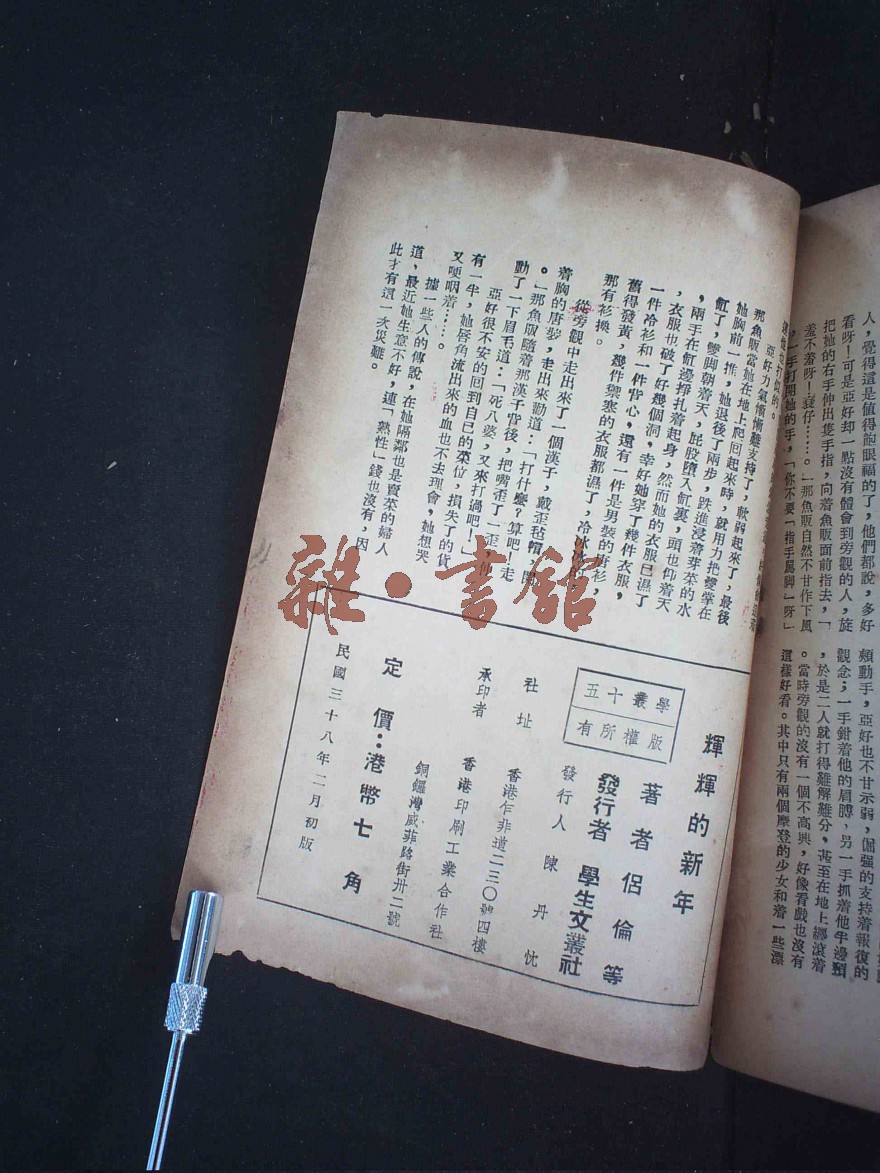 人，覺得這是值得飽眼福的了，他們都說，多好
看呀！可是亞好却一點沒有體會到旁觀的人，旋
把她的右手伸出隻手指，向着魚販面前指去，「
羞不羞呀！衰仔……。」那魚販自然不甘作下風
，一手打開她的手，「你不要「指手罵脚」呀」
頰動手，亞好也不甘示弱，倔强的支持着報復的
觀念；一手鉗着他的肩膊，另一手抓着他半邊頸
，於是二人就打得難解難分，甚至在地上纒滾着
。當時旁觀的沒有一個不高興，好像看戲也沒有
這樣好看。其中只有兩個摩登的少女和着一些漂
亞好力氣慚慚難支持了，軟弱起來了，最後
那魚販當她在地上爬回起來時，就用力把雙掌在
她胸前一推，她退後了兩步，跌進浸着芽菜的水
缸了，雙脚朝着天，屁股墮入缸裏，頭也仰着天
，兩手在缸邊掙扎着起身，然而她的衣服已濕了
，衣服也破了好幾個洞，幸好她穿了幾件衣服，
一件冷衫和一件背心，還有一件是男裝的唐衫，
舊得發黃，幾件禦寒的衣服都濕了，冷冰冰的
那有衫換。
從旁觀中走出來了一個漢子，戴歪毡帽，
着胸的唐衫，走出來勸道：「打什麼？算吧！走
。」那魚販隨着那漢子背後，把嘴歪了一歪，
動了一下眉毛道：「死八婆，又來打過吧！」
亞好很不安的回到自己的菜位，損失了的貨
有一半，她唇角流出來的血也不去理會，她想哭
又哽咽着……。
據一些人的傳說，在她隔鄰也是賣菜的婦人
道，最近她生意不好，連「熱性」錢也沒有，因
此才有這一次災難。
輝輝的新年
學叢十五
版權所有
著者 侶倫等
發行者 學生文叢社
發行人 陳丹忱
社址 香港乍非道二三〇號四樓
承印者 香港印刷工業合作社
銅鑼灣威菲路街卅二號
定價：港幣七角
民國三十八年二月初版
雜·書館